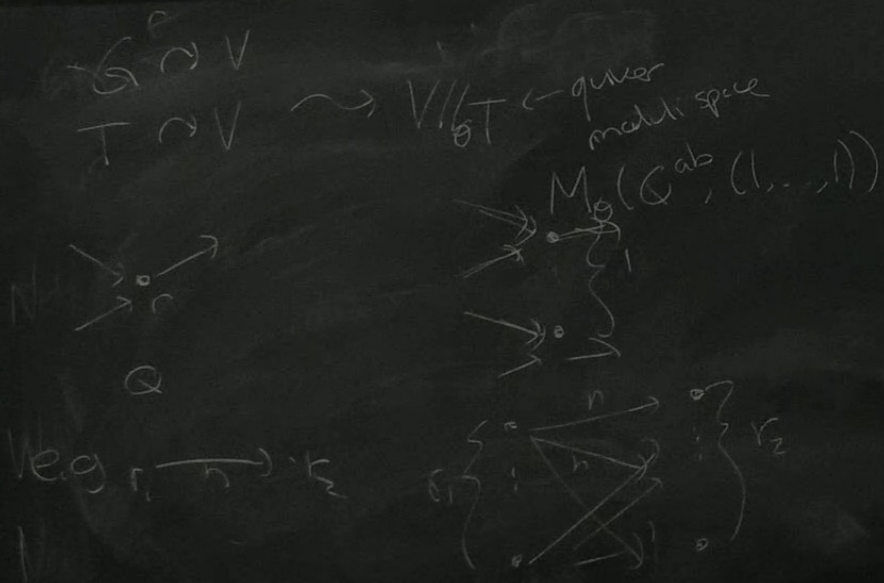 G ↷ V
T ↷ V ⇝ V//_θ T ← quiver
moduli space
M_θ(Q^ab, (1,...,1))
r
1
Q
e.g. r₁ —n→ r₂
r₁ { n n } r₂